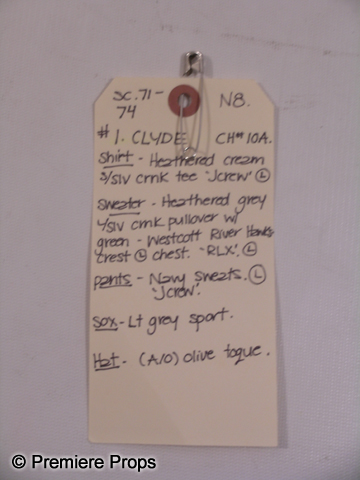 SC. 71-
74
N8.
#1. CLYDE CH# 10A.
Shirt - Heathered cream
3/slv crnk tee 'Jcrew' (L)
Sweater - Heathered grey
4/slv crnk pullover w/
green - Westcott River Hawks
crest @ chest. 'RLX'. (L)
pants - Navy sweats. (L)
'Jcrew'.
Sox - Lt grey sport.
Hat - (A/O) olive toque.
© Premiere Props